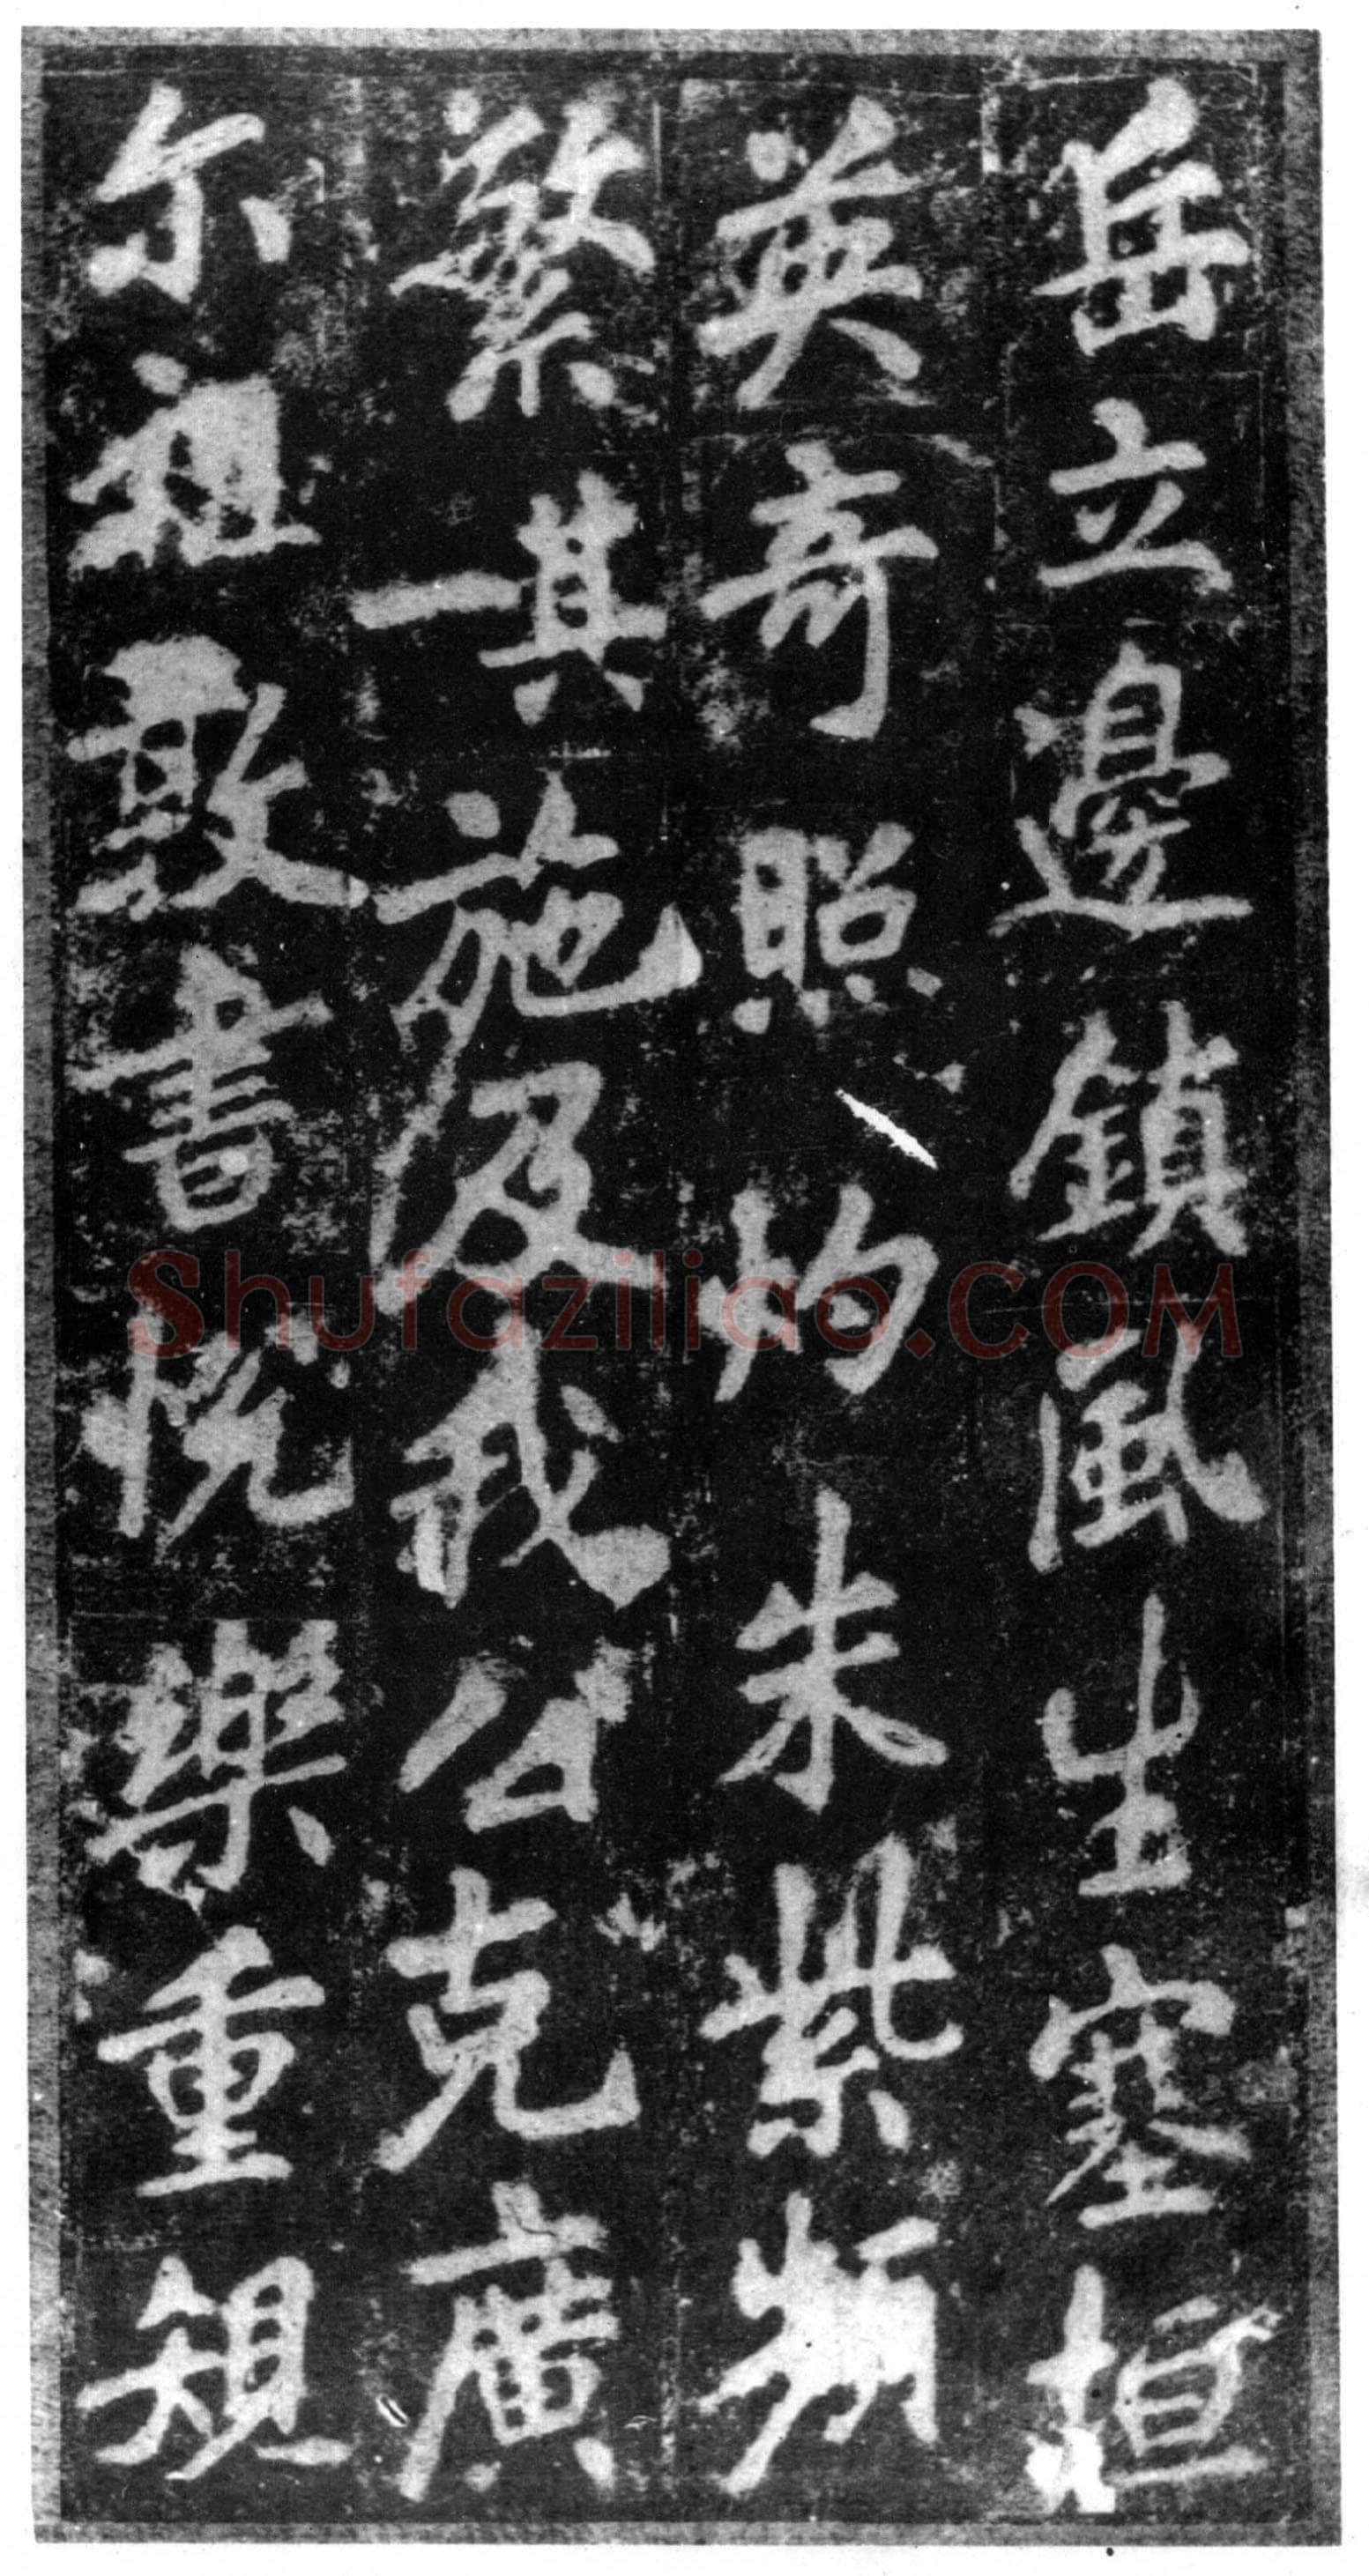 岳立邊鎮風生塞垣
英奇照灼朱紫頻
繁其一施及我公克廣
尔祖敦書悦樂重規
Shufaziliao.COM